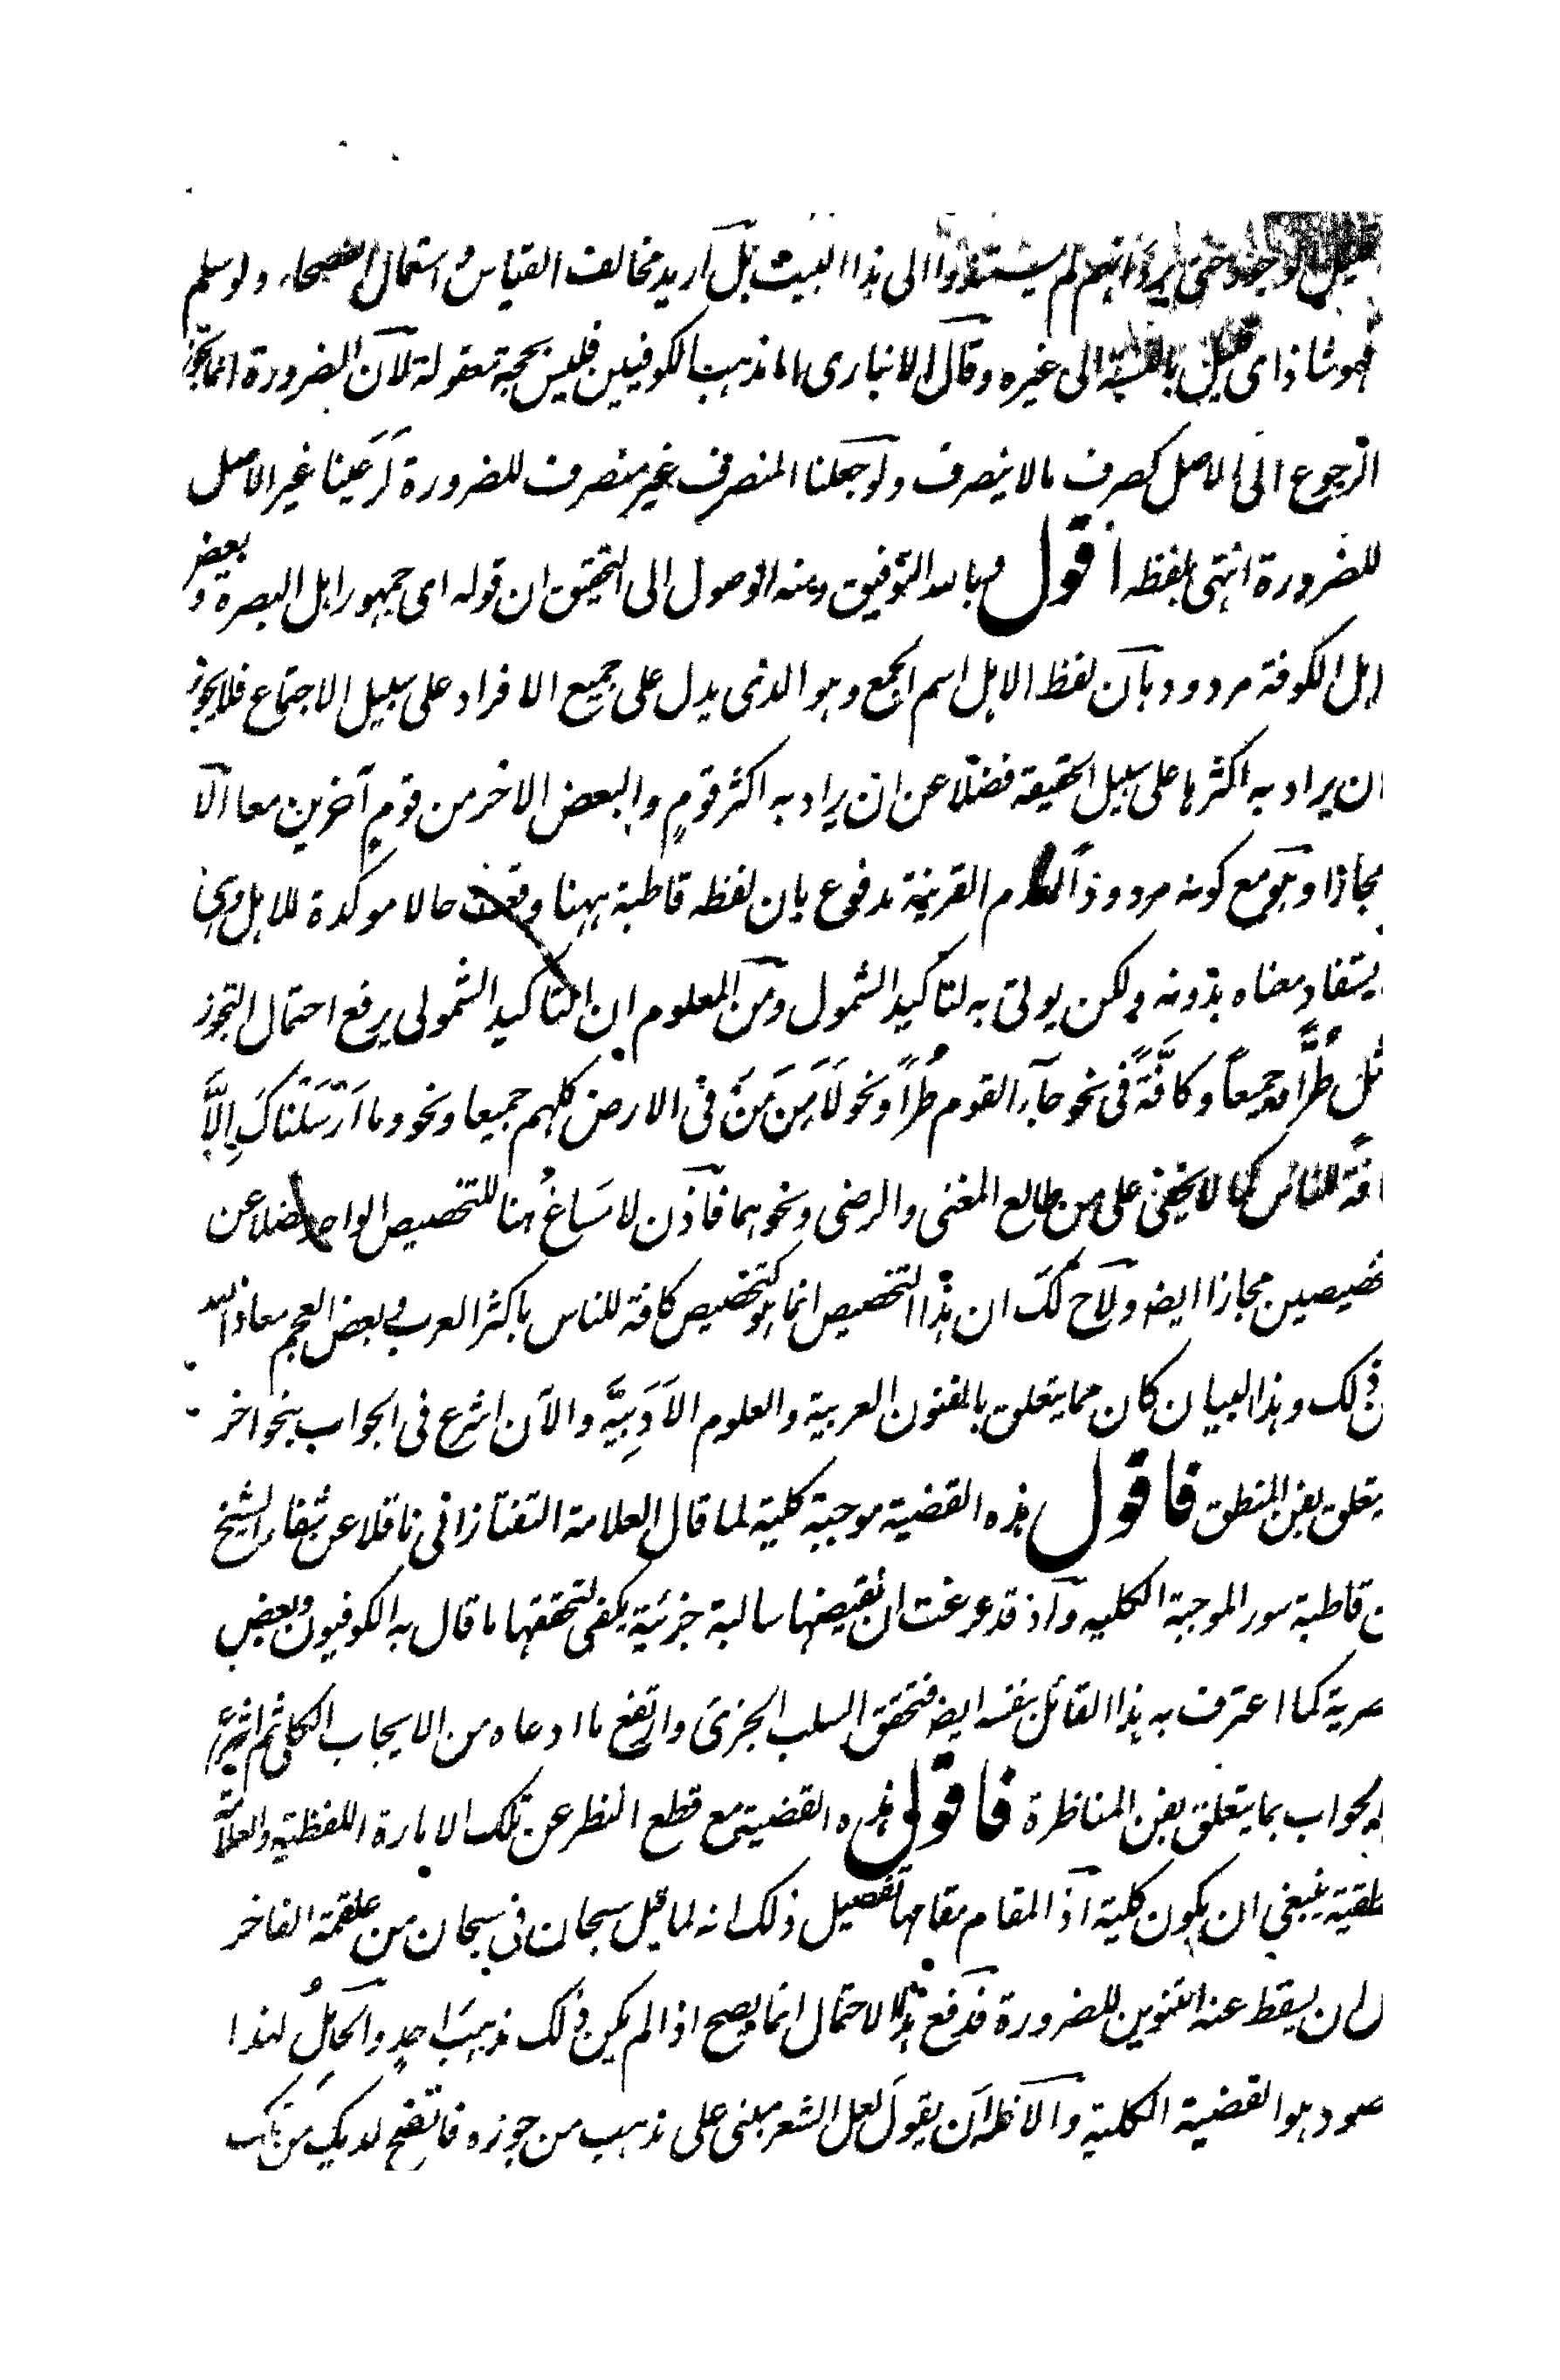 قليل الوجود حتى يرد انهم لم يستندوا الى هذا البيت بل اريد مخالف القياس و استعمال الفصحاء ولو سلم
فهو شاذ اى قليل بالنسبة الى غيره وقال الانبارى اما مذهب الكوفيين فليس بحجة معقولة لان الضرورة انما يجوز
الرجوع الى الاصل كصرف مالا ينصرف ولو جعلنا المنصرف غير منصرف للضرورة لرَعَينا غير الاصل
للضرورة انتهى بلفظه اقول وبالله التوفيق ومنه الوصول الى التحقيق ان قوله اى جمهور اهل البصرة و بعض
اهل الكوفة مردود بان لفظ الاهل اسم الجمع وهو الذى يدل على جميع الافراد على سبيل الاجتماع فلا يجوز
ان يراد به اكثرها على سبيل الحقيقة فضلا عن ان يراد به اكثر قومٍ والبعض الاخر من قومٍ آخرين معا الا
مجازا وهو مع كونه مردودا لعدم القرينة مدفوع بان لفظه قاطبة ههنا وقعت حالا موكدة للاهل وهى
يستفاد معناه بدونه ولكن يوتى به لتاكيد الشمول ومن المعلوم ان التاكيد الشمولى يرفع احتمال التجوز
مثل طُرًّا وجميعاً وكافَّةً فى نحو جآء القوم طُرًّا ونحو لَاٰمَنَ مَنْ فى الارض كلهم جميعا ونحو وما اَرْسَلْنَاكَ اِلَّا
افة للناس كما لا يخفى على من طالع المغنى والرضى ونحوهما فاذن لا مَسَاغ هنا للتخصيص الواحد فضلا عن
تخصيصين مجازا ايضا ولاح لك ان هذا التخصيص انما هو كتخصيص كافة للناس باكثر العرب وبعض العجم معاذ الله
ن ذلك وهذا البيان كان مما يتعلق بالفنون العربية والعلوم الاَدَبِيَّة والآن اشرع فى الجواب بنحو اخر
يتعلق بفن المنطق فاقول هذه القضية موجبة كلية لما قال العلامة التفتازانى ناقلا عن شفاء الشيخ
ن قاطبة سور الموجبة الكليه واذ قد عرفت ان نقيضها سالبة جزئية يكفى لتحققها ما قال به الكوفيون وبعض
صرية كما اعترف به هذا القائل بنفسه ايضا فتحقق السلب الجزئ وارتفع ما ادعاه من الايجاب الكلى ثم اشرع
الجواب بما يتعلق بفن المناظرة فاقول هذه القضية مع قطع النظر عن تلك الامارة اللفظية والعلامة
طقية ينبغى ان يكون كلية اذ المقام مقامها تفصيل ذلك انه لما قيل سبحان فى سبحان من علقمة الفاخر
ل ان يسقط عنه التنوين للضرورة فدفع هذا الاحتمال انما يصح اذا لم يكن ذلك مذهبَ احدٍ والحاملُ لهذا
صود هو القضية الكلية والا فله اَن يقول لعل الشعر مبنى على مذهب من جوزه فاتضح لديك من تلك